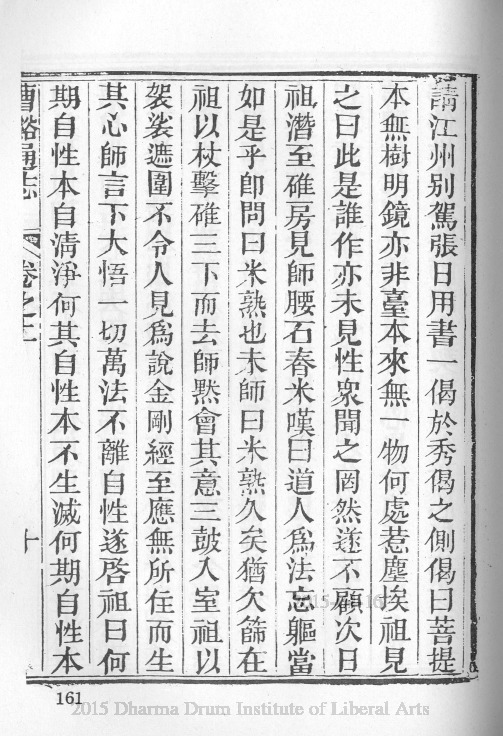 請江州别駕張日用書一偈於秀偈之側偈曰菩提
本無樹明鏡亦非臺本來無一物何處惹塵埃祖見
之曰此是誰作亦未見性衆聞之罔然遂不顧次日
祖潛至碓房見師腰石舂米嘆曰道人爲法忘軀當
如是乎卽問曰米熟也未師曰米熟久矣猶欠篩在
祖以杖擊碓三下而去師黙會其意三鼓入室祖以
袈裟遮圍不令人見爲說金剛經至應無所住而生
其心師言下大悟一切萬法不離自性遂啓祖曰何
期自性本自清淨何其自性本不生滅何期自性本
曹谿通志 卷之二 十
161
2015 Dharma Drum Institute of Liberal Arts